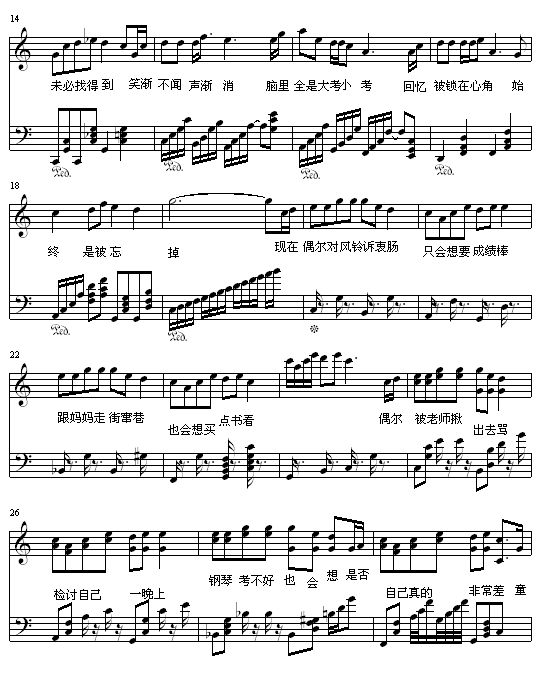 14
未必找得到 笑渐 不闻 声渐 消 脑里 全是大考小 考 回忆 被锁在心角 始
Ped. Ped. Ped. Ped.
18
终 是被忘 掉 现在 偶尔对风铃诉衷肠 只会想要成绩棒
Ped. Ped.
22
跟妈妈走 街窜巷 也会想买 点书看 偶尔 被老师揪 出去骂
26
检讨自己 一晚上 钢琴 考不好 也 会 想 是否 自己真的 非常差 童